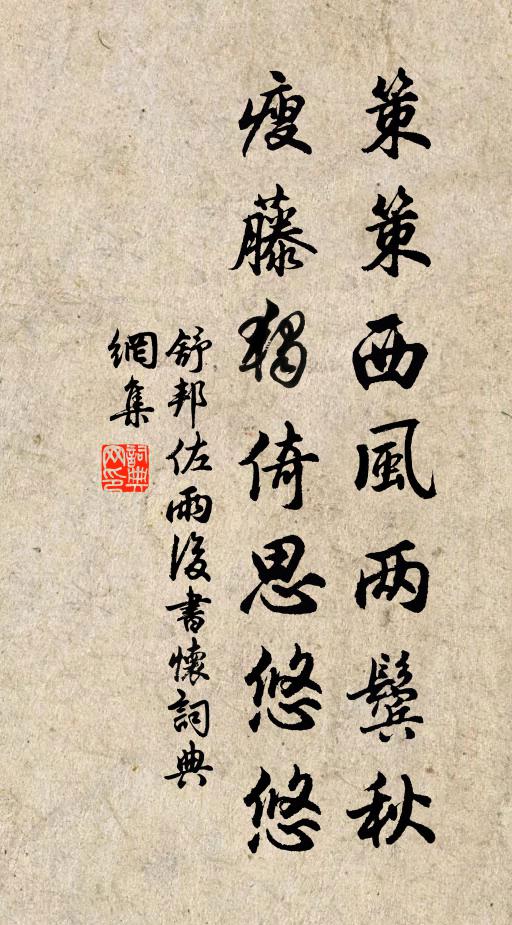 策策西風两鬓秋
瘦藤獨倚思悠悠
舒邦佐雨後書懷詞典
網集
詞典
网印